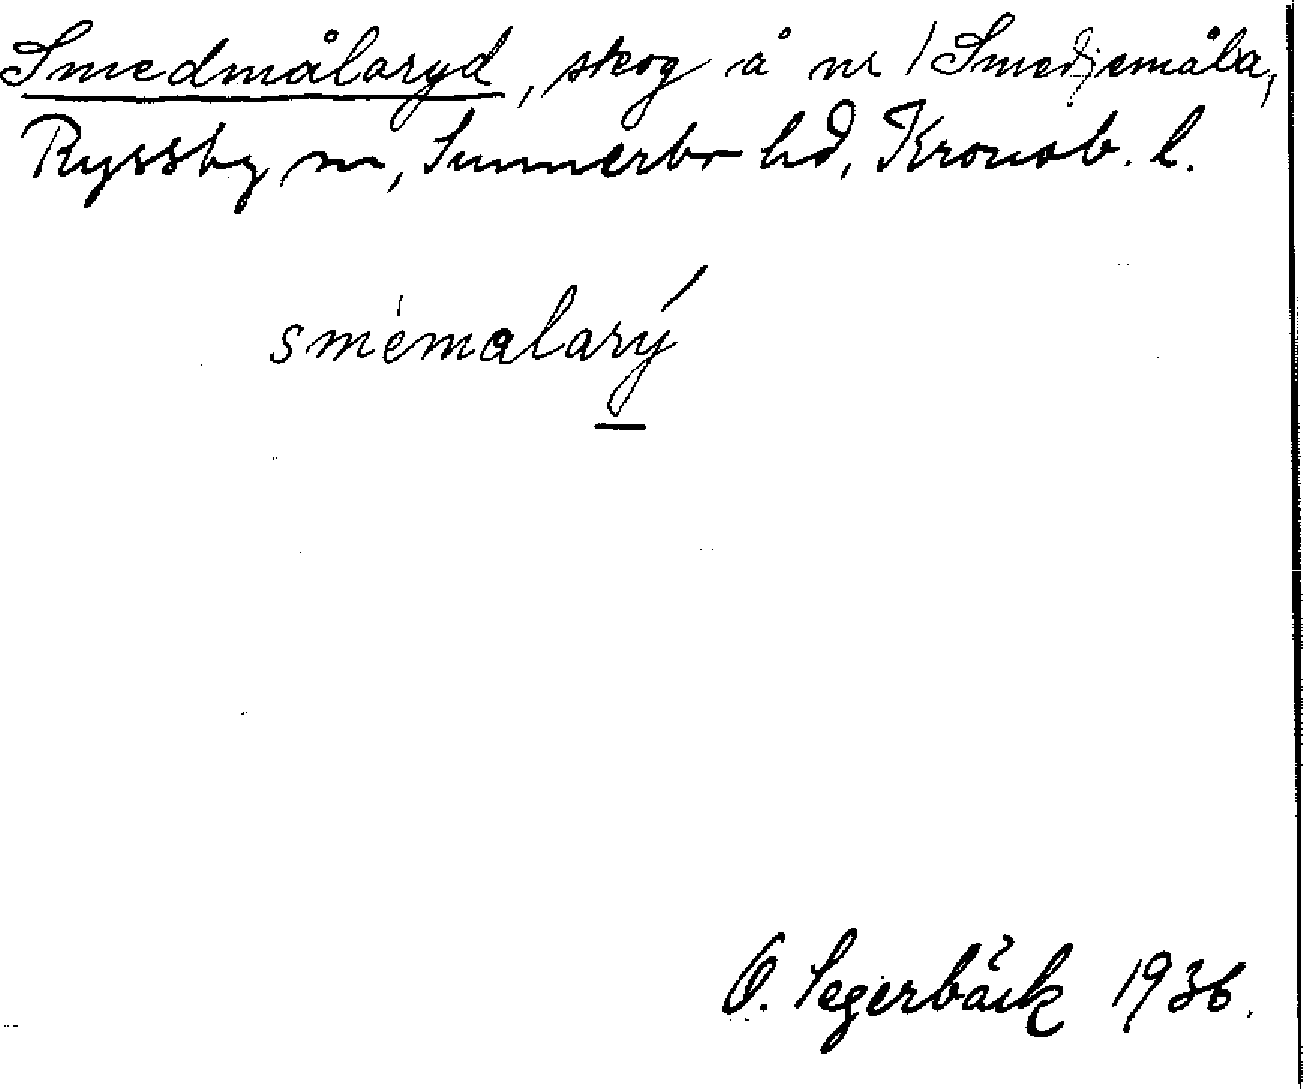 Smedmålaryd, skog å nr 1 Smedjemåla,
Ryssby sn, Sunnerbo hd, Kronob. l.
smémalarý
O. Segerbäck 1936.